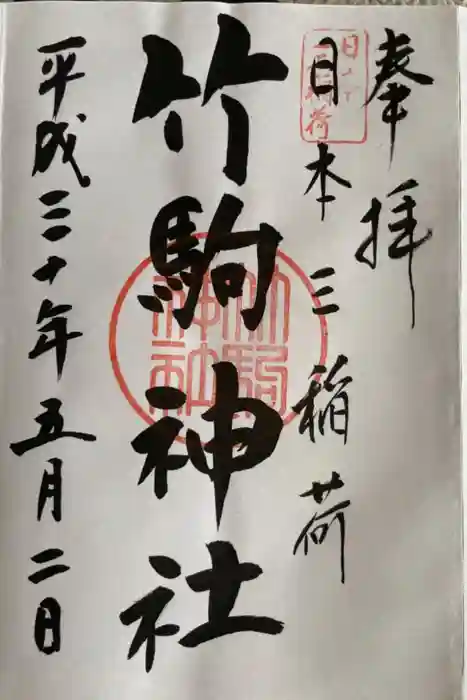 奉拝
日本三稲荷
竹駒神社
平成三十年五月二日
竹駒神社